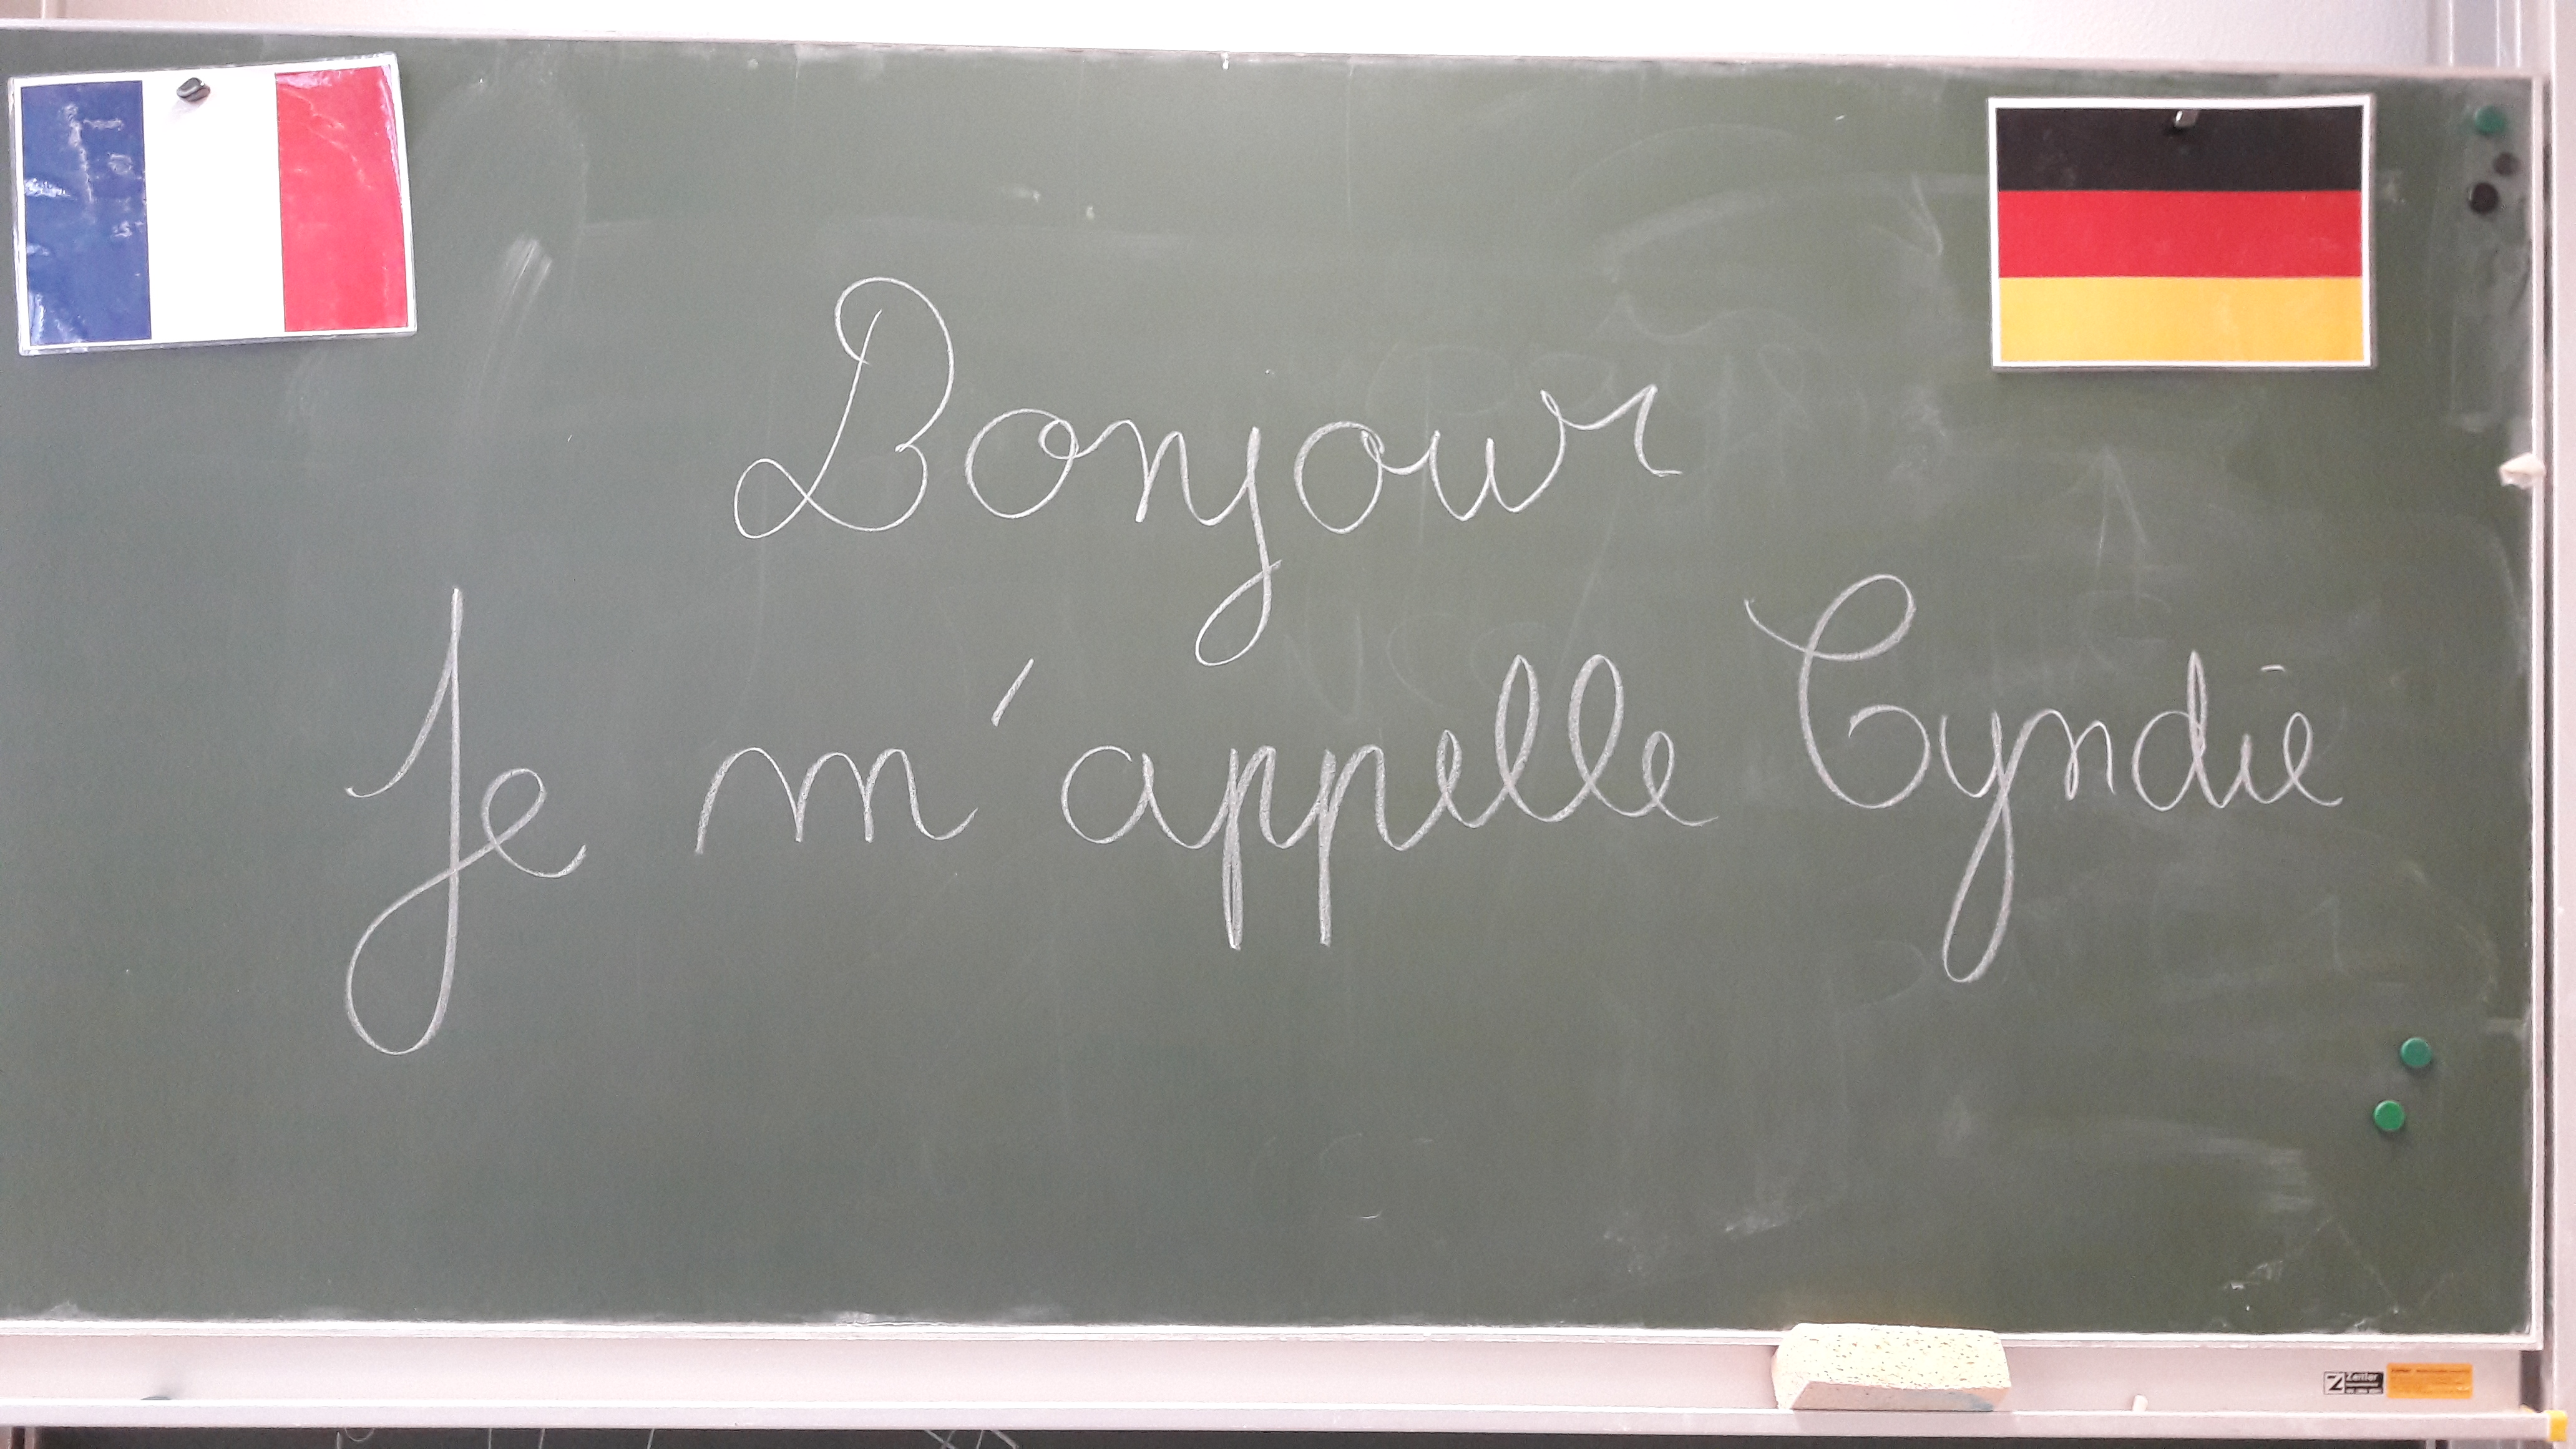 Bonjour
Je m'appelle Cyndie
Zeitler